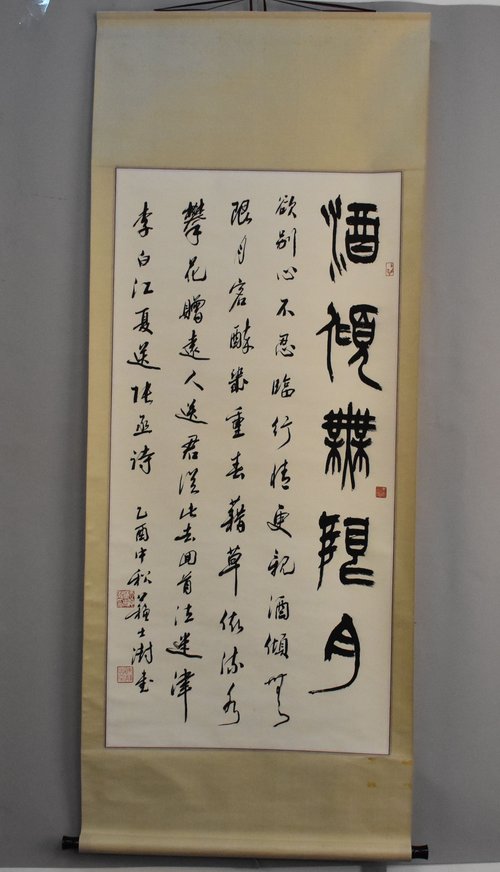 酒傾無限月
欲别心不忍臨行情更親酒傾無
限月客醉幾重春藉草依流水
攀花贈遠人送君從此去回首泣迷津
李白江夏送張丞詩 乙酉中秋蘇士澍書